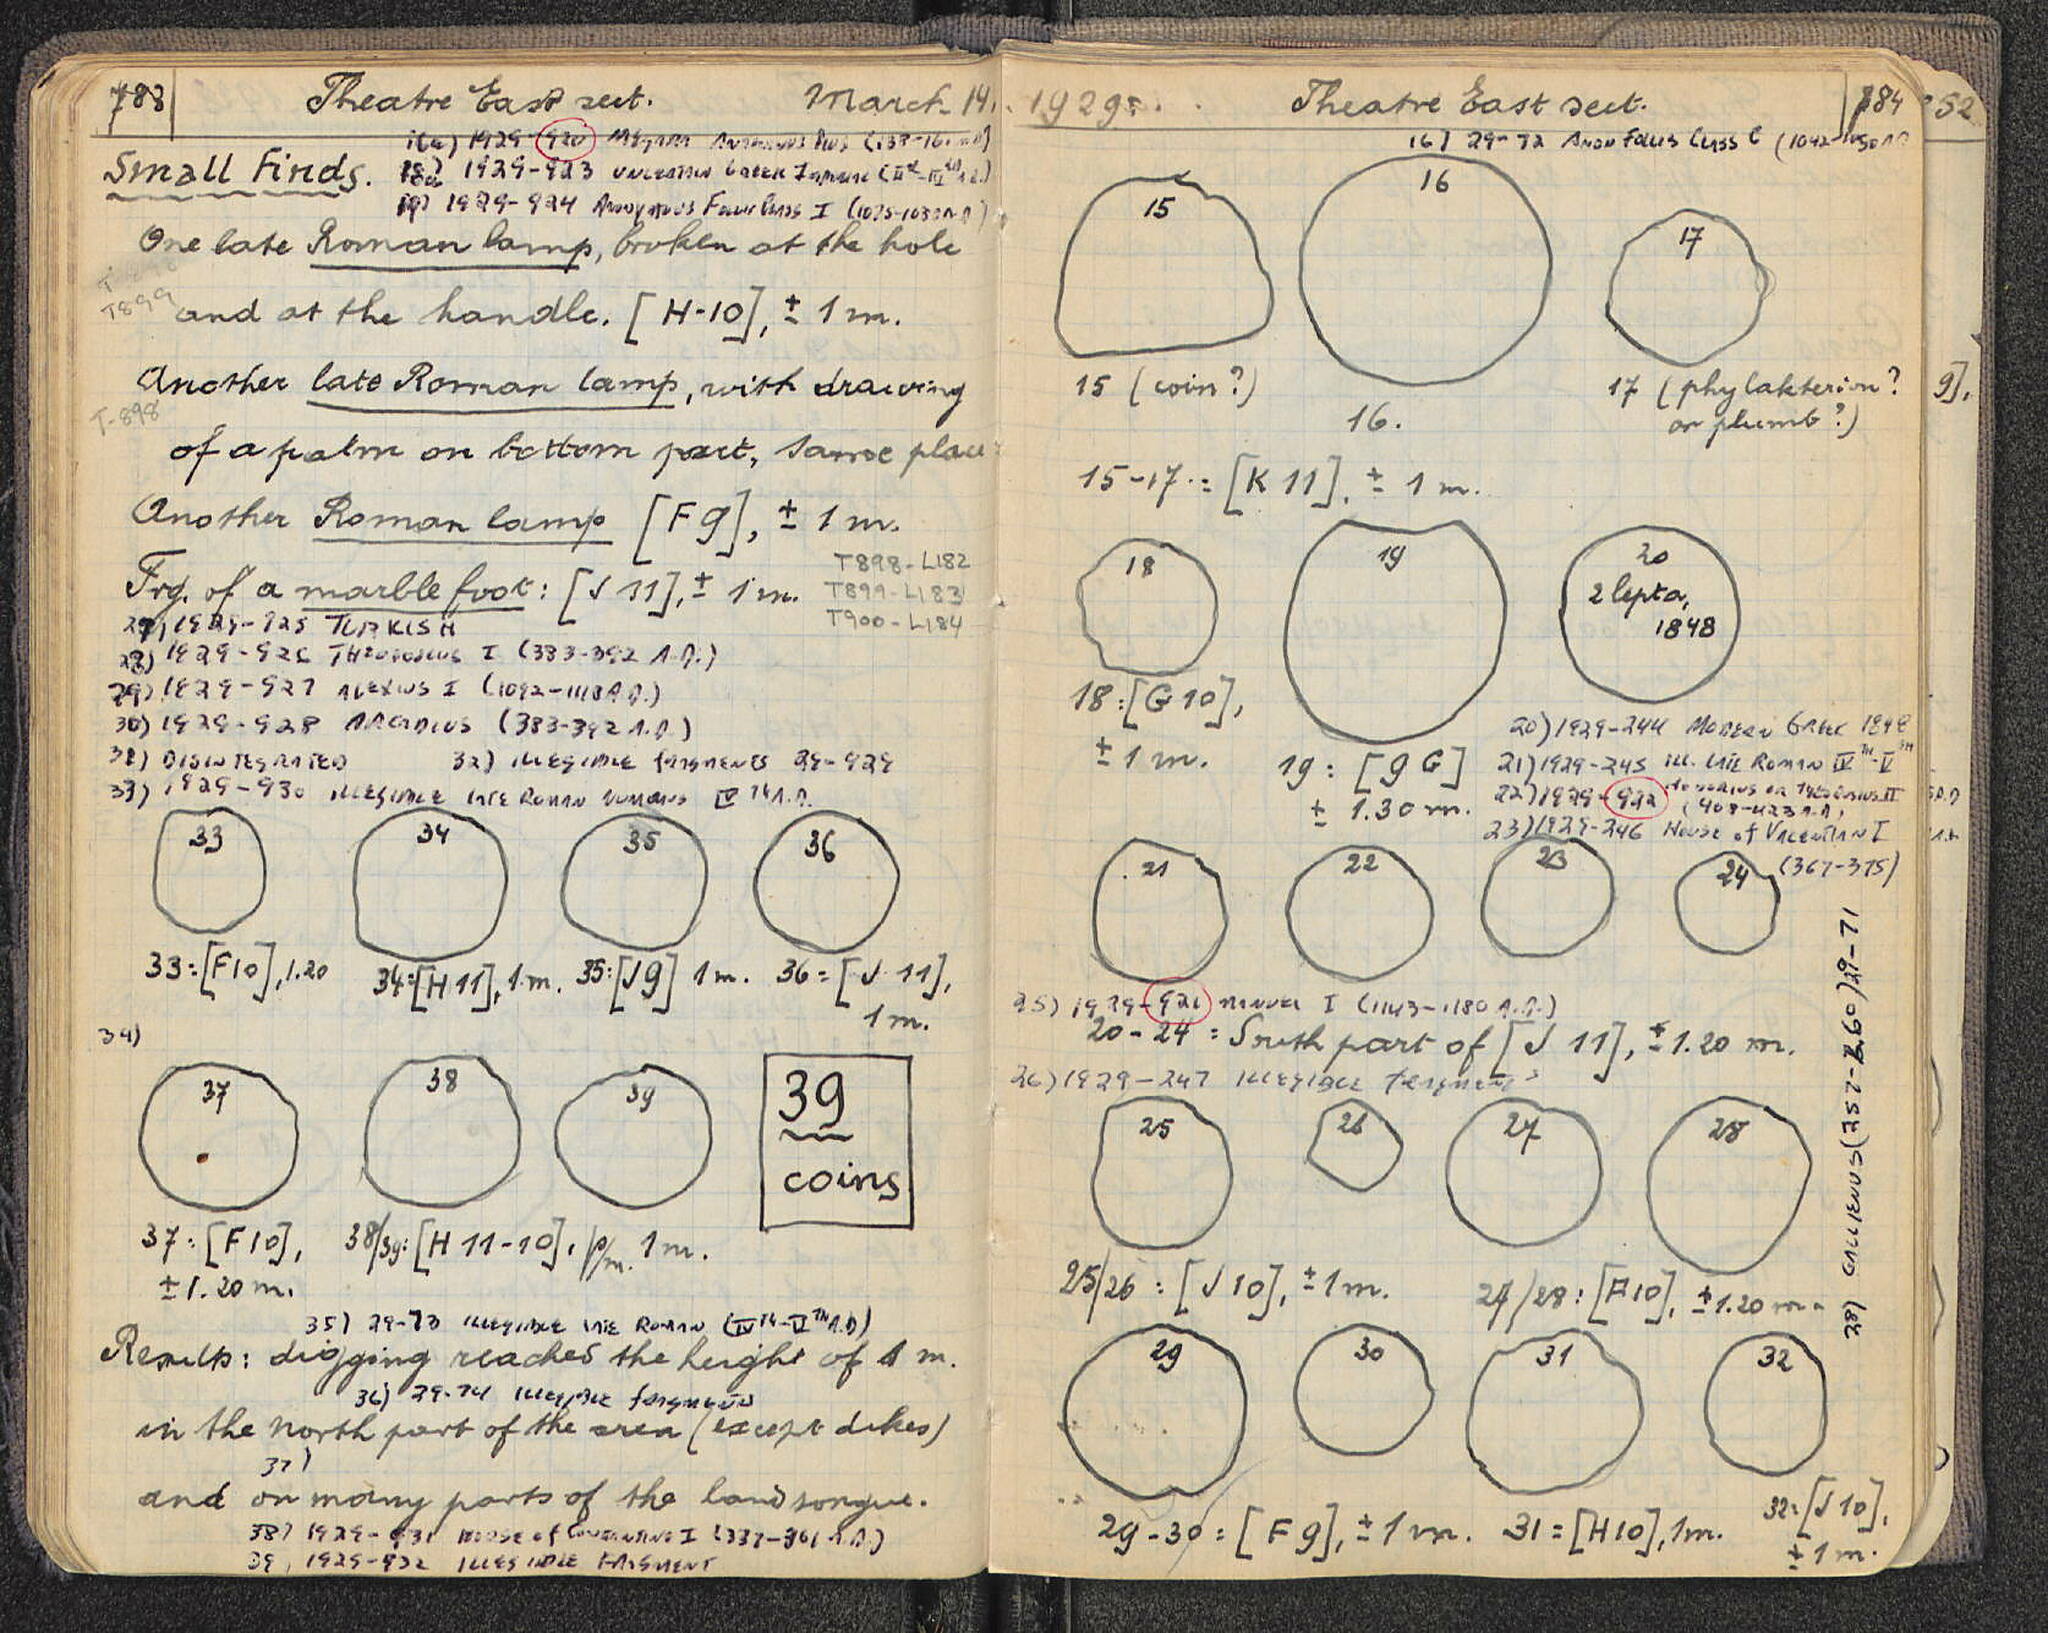 783
Theatre East sect.
March 14,
1929-920
Antoninus Pius
Small Finds.
18) 1929-923 Uncertain Greek Imperial
19) 1929-924 Anonymous Follis Class I
One late Roman lamp, broken at the hole
T899
and at the handle. [H-10], ± 1 m.
Another late Roman lamp, with drawing
T-898
of a palm on bottom part, same place
Another Roman lamp [F9], ± 1 m.
T898-L182
Frg. of a marble foot: [J 11], ± 1 m.
T899-L183
T900-L184
1929-925 TURKISH
28) 1929-926 THEODOSIUS I (383-392 A.D.)
29) 1929-927 ALEXIUS I (1092-1118 A.D.)
30) 1929-928 ARCADIUS (383-392 A.D.)
31) DISINTEGRATED 32) ILLEGIBLE FRAGMENTS 29-929
33) 1929-930 ILLEGIBLE LATE ROMAN IV TH A.D.
33 34 35 36
33:[F10], 1.20 34:[H11], 1 m. 35:[J9] 1 m. 36=[J 11],
1 m.
34)
37 38 39 39
coins
37:[F10], 38/39:[H 11-10], p/m. 1 m.
±1.20 m.
35) 29-73 ILLEGIBLE LATE ROMAN (IV TH-V TH A.D)
Results: digging reached the height of 1 m.
36) 29-74 ILLEGIBLE FRAGMENTS
in the north part of the area (except dikes)
37)
and on many parts of the land tongue.
38) 1929-931 HOUSE OF CONSTANTINE I (337-361 A.D.)
39) 1929-932 ILLEGIBLE FRAGMENT
1929.
Theatre East sect.
784
52
16) 29-72 ANON FOLLIS CLASS C
15 16 17
15 (coin?)
16.
17 (phylakterion?
or plumb?)
9],
15-17 = [K 11], ± 1 m.
18 19 20
2 lepta,
1848
18:[G10],
± 1 m.
19: [9 G]
± 1.30 m.
20) 1929-244 MODERN GREEK 1848
21) 1929-245 ILL. LATE ROMAN IV TH-V TH
22) 1929-922 HONORIUS OR THEODOSIUS II
(408-423 A.D.)
23) 1929-246 HOUSE OF VALENTINIAN I
(367-375)
21 22 23 24
25) 1929-921 MANUEL I (1143-1180 A.D.)
20-24 = South part of [J 11], ±1.20 m.
26) 1929-247 ILLEGIBLE FRAGMENTS
25 26 27 28
25/26 : [J 10], ±1 m. 27/28 : [F10], ±1.20 m.
28) GALLIENUS (257-260) 29-71
29 30 31 32
29-30 = [F9], ±1 m. 31=[H10], 1m. 32=[J10],
±1 m.